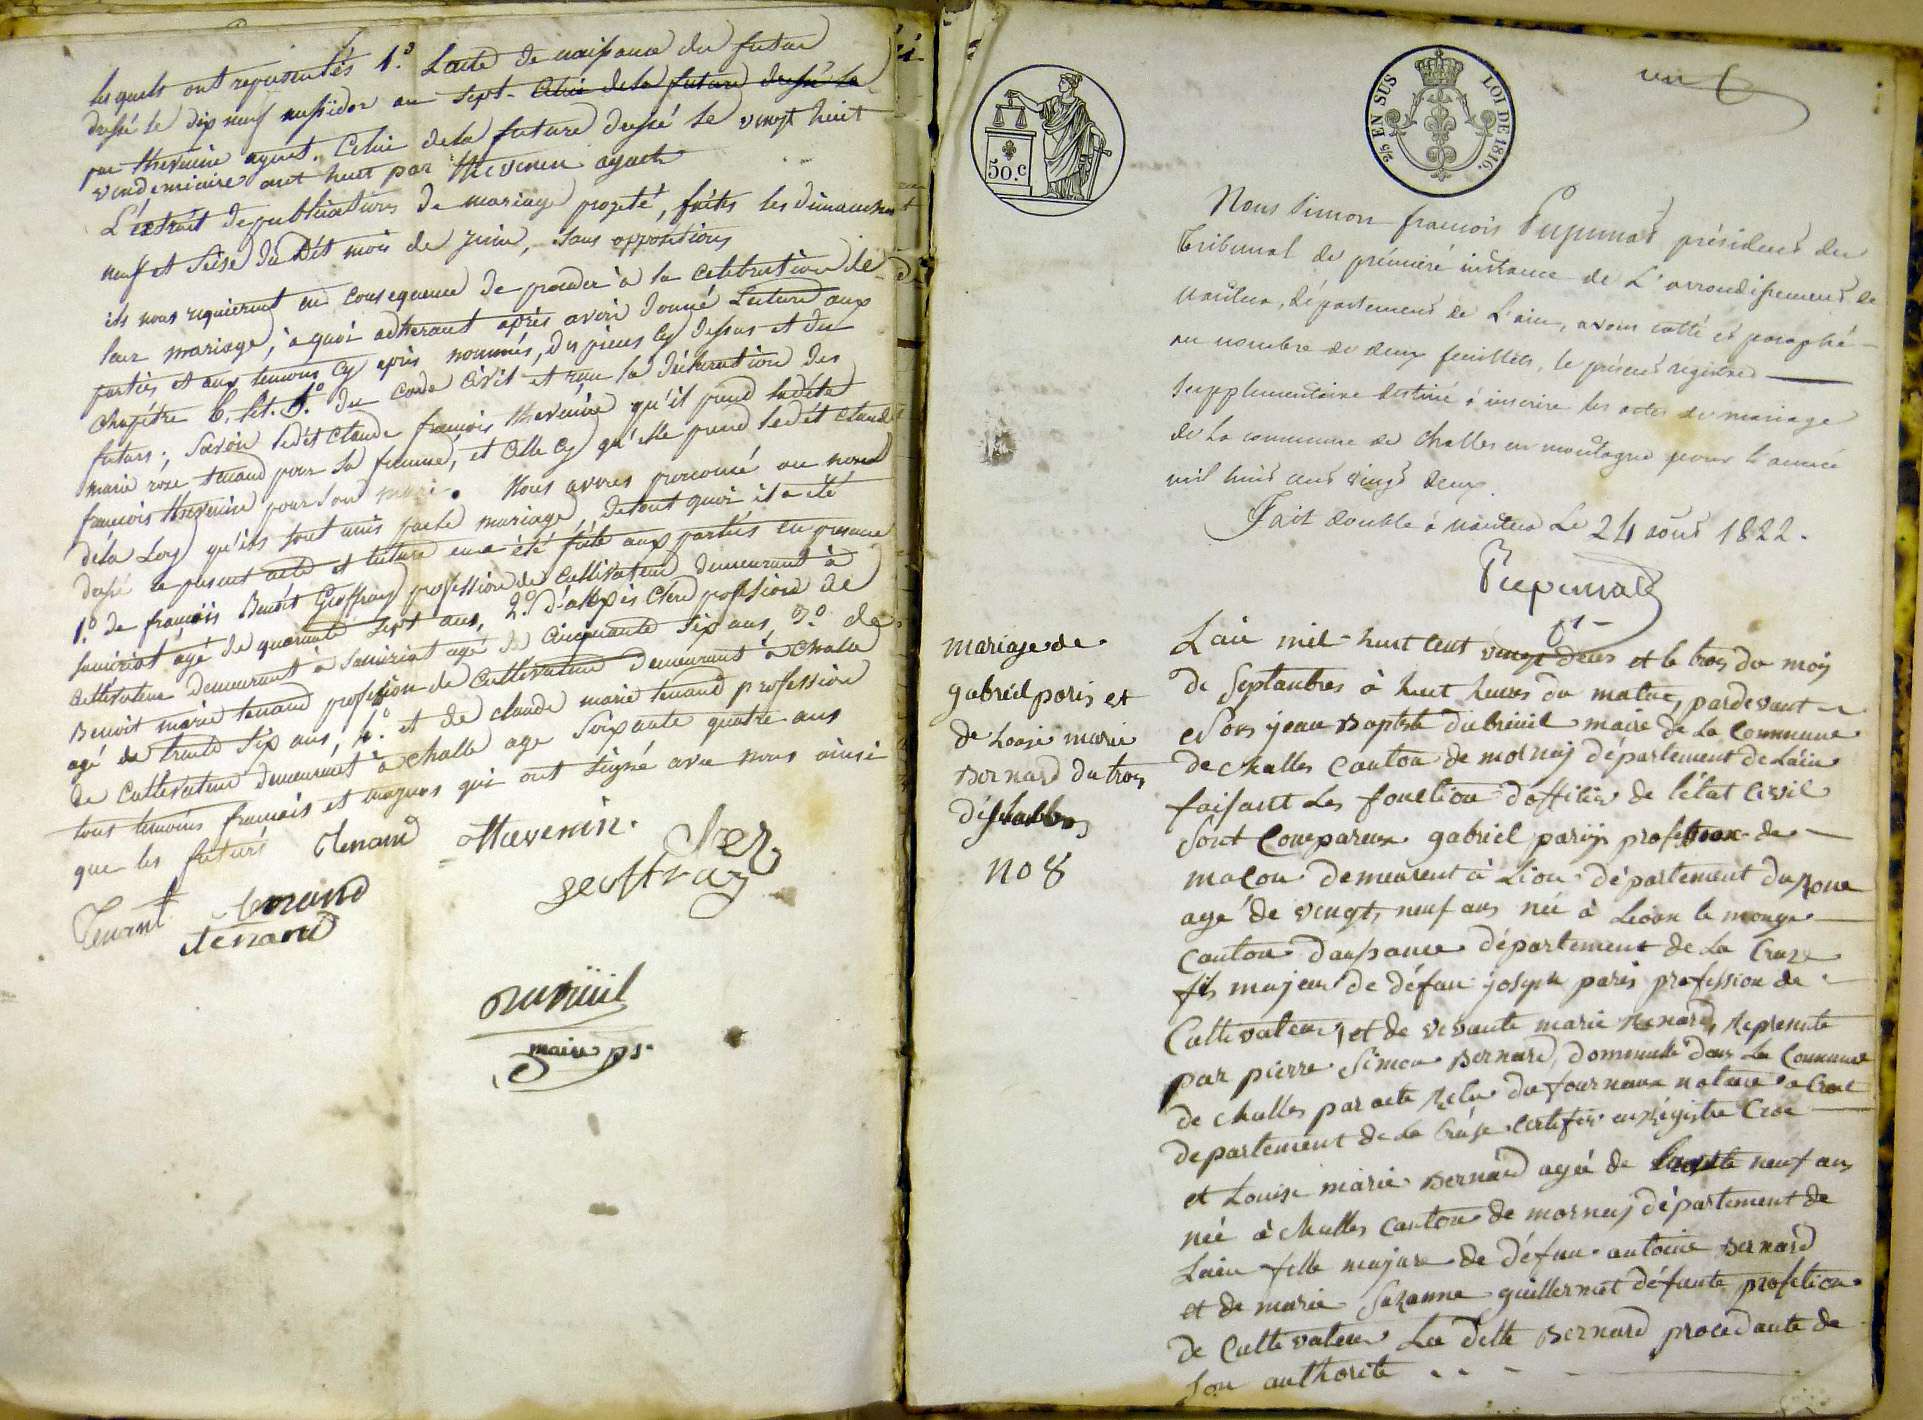 lesquels ont representés 1.° L'acte de naissance du futur
dressé le dix neuf messidor an sept. Celui de la future dressé le
par thevenin agent. Celui dela future dressé le vingt huit
vendemiaire an huit par thevenin agent
L'extrait depublications de mariage projeté, faites les dimanches
neuf et seise du dit mois de juin, sans oppositions
ils nous requierent en consequence de proceder à la celebration de
leur mariage, à quoi adherant après avoir donné Lecture aux
parties et aux temoins cy après nommés, des pieces cy dessus et du
chapitre 6, tit. 5.° du code civil et reçu la déclaration des
futurs; Savoir ledit Claude françois thevenin qu'il prend ladite
marie rose tenand pour sa femme, et Elle cy qu'elle prend ledit Claude
françois thevenin pour son mari. Nous avons prononcé au nom
déla Loy qu'ils sont unis par le mariage, detout quoi il a été
dressé le present acte et lecture en a été faite aux parties en presence
1.° de françois Benoit Geoffray profession de cultivateur demeurant à
agé de quarante sept ans, 2.° d'alexis Cler profession de
cultivateur demeurant à agé de cinquante six ans, 3.° de
Benoit marie tenand profession de cultivateur demeurant à challe
agé de trente six ans, 4.° et de claude marie tenand profession
de cultivateur demeurant à challe age soixante quatre ans
tous temoins francais et majeurs qui ont signé avec nous ainsi
que les futurs Tenand thevenin. Cler
geoffray
Tenant tenand
tenand
Dubreüil
maire
50.c
2/5 EN SUS LOI DE 1816.
un
Nous Simon françois président du
Tribunal de première instance de L'arrondissement de
Nantua, département de L'ain, avons cotté et paraphé
au nombre de deux feuillets, le présent registre
supplementaire destiné à inscrire les actes de mariage
de la commune de challes en montagne pour l'année
mil huit cent vingt deux
Fait double à Nantua Le 24 août 1822.
mariage de
gabriel paris et
de Louise marie
Bernard du trois
No 8
Lan mil huit cent vingt deux et le trois du mois
de Septembres à huit heures du matin, pardevant
Nous jean Baptiste dubreüil maire de La Commune
de challes Canton de mornay département de Lain
faisant les fonction d'officier de l'état Civil
Sont Compareux gabriel paris profession de
macon demeurent à Lion département du Rone
agé de vingt neuf ans née à
Canton departement de La
fils majeur de défun joseph paris profession de
Cultivateur, et de vivante marie Represente
par pierre Simon Bernard, domicilié dans La Commune
de challes par acte notaire a
departement de La certifié enregistre
et Louise marie Bernard agée de trente neuf ans
née à challes canton de mornay département de
Lain fille majeure de défun antoine Bernard
et de marie Sazanne guillermet défunte profetion
de Cultivateur La ditte Bernard procedante de
Son authorite